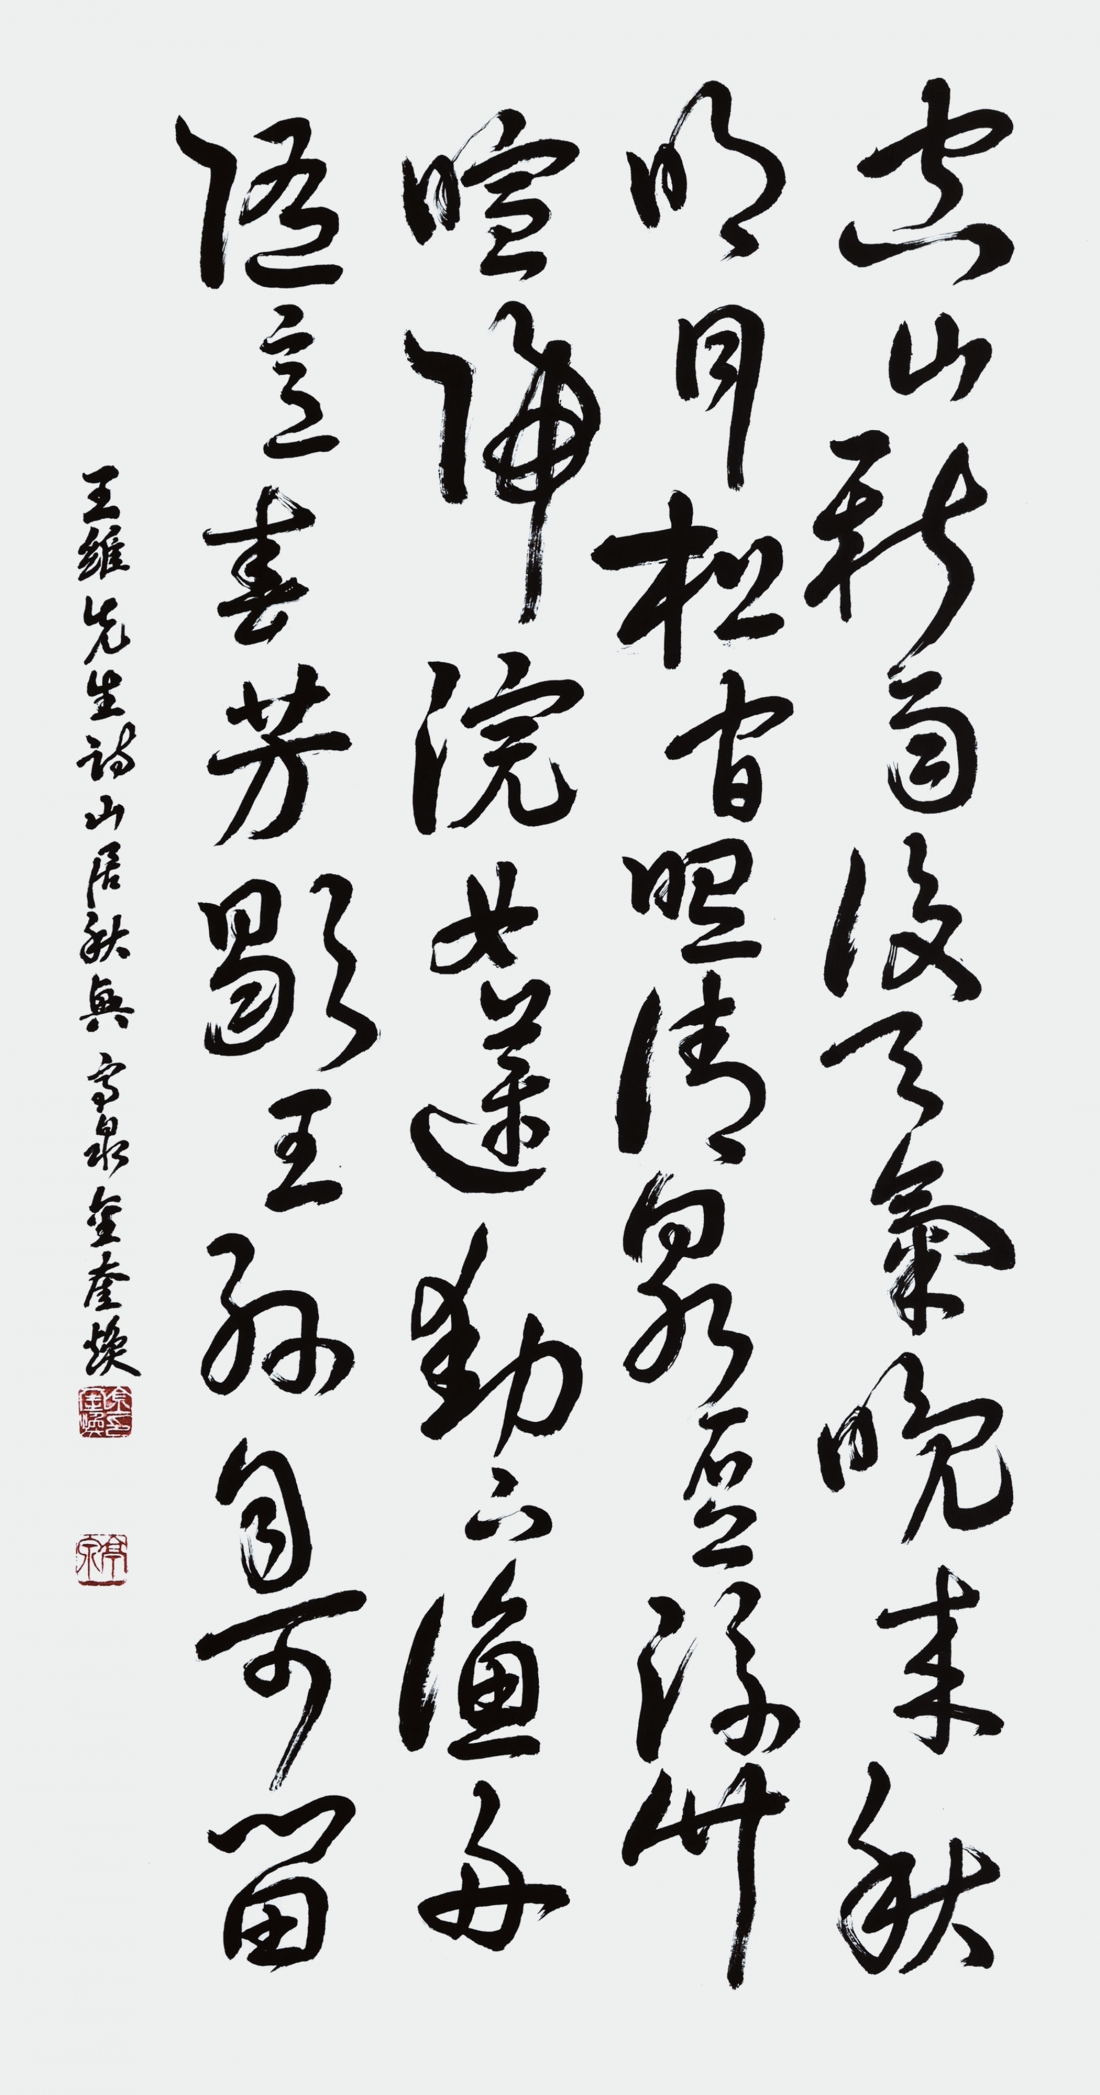 空山新雨後天氣晚來秋
明月松間照清泉石上流竹
喧歸浣女蓮動下漁舟
隨意春芳歇王孫自可留
王維先生詩山居秋興 亭泉金奎煥
亭泉